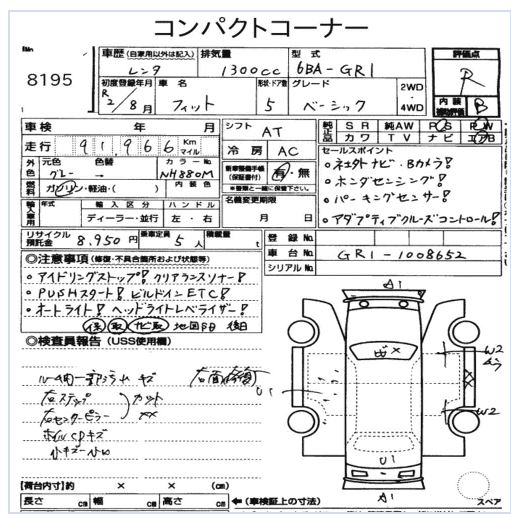 コンパクトコーナー
No.
8195
車歴 (自家用以外は記入) 排気量 型式 評価点
レンタ 1300cc 6BA-GR1 R
初度登録年月 車名 形状・ドア数 グレード 2WD 内装 補助評価 B
R2/8月 フィット 5 ベーシック 4WD
車検 年 月 シフト AT 純正品 SR 純AW PS PW
走行 91,966 Km マイル 冷房 AC カワ TV ナビ エアB
外色 元色 色替 カラーNo. セールスポイント
グレー → NH880M 有・無
燃料 ガソリン・軽油・( ) 内装色 ※書類と一緒に保管下さい。
輸入車用 年式 輸入区分 ハンドル 名義変更期限
ディーラー・並行 左・右 月 日
。ネオタトナビ・Bカメラ!
。ホンダセンシング!
。パーキングセンサー!
。アダプティブクルーズコントロール!
リサイクル預託金 8,950円 乗車定員 5人 積載量 t
登録No.
車台No. GR1-1008652
シリアルNo.
◎注意事項 (修復・不具合箇所および状態等)
。アイドリングストップ! クリアランスソナー!
。PUSHスタート! ビルドインETC!
。オートライト! ヘッドライトレベライザー!
保 取 ナビ取 地図SD 後日
◎検査員報告 (USS使用欄)
キズ
右ステップ カット
右センターピラー
A1
W2
U1
W2
U1
A1
【荷台内寸】約 × × (cm)
長さ cm 幅 cm 高さ cm ←(車検証上の寸法)
スペア